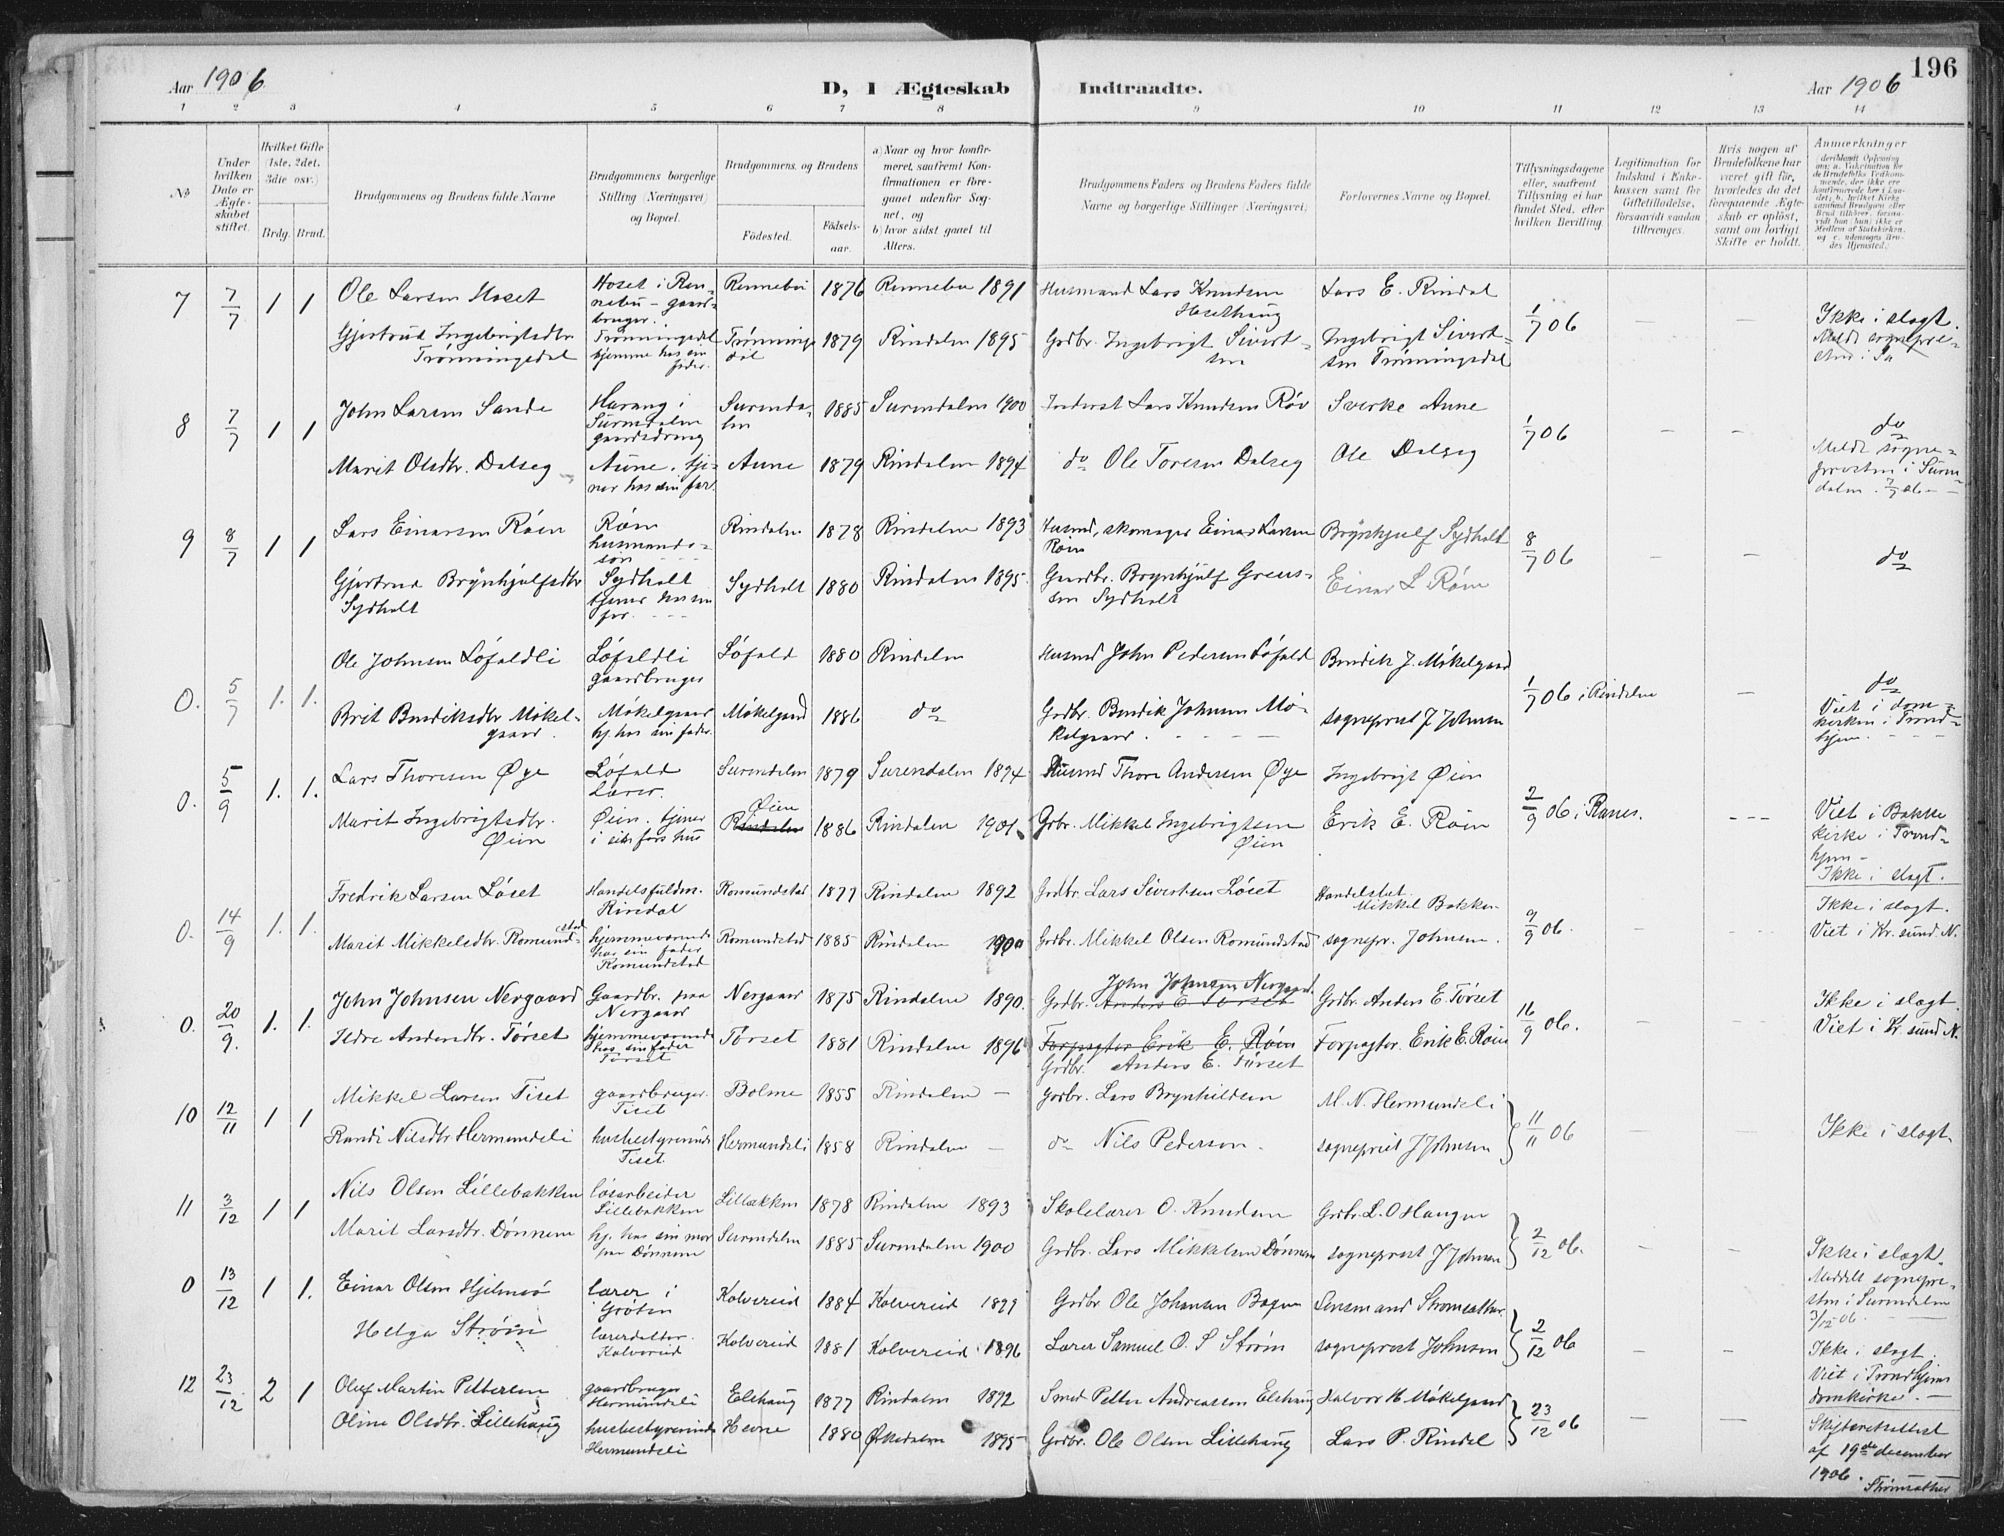 196
Aar 1906
D, I Ægteskab Indtraadte.
Aar 1906
1 2 3 4 5 6 7 8 9 10 11 12 13 14
No
Under hvilken Dato er Ægteskabet stiftet.
Hvilket Gifte (1ste, 2det, 3die osv.)
Brdg. Brud.
Brudgommens og Brudens fulde Navne
Brudgommens borgerlige Stilling (Næringsvei) og Bopæl.
Brudgommens og Brudens
Fødested.
Fødselsaar.
a) Naar og hvor konfirmeret, saafremt Konfirmationen er foregaaet udenfor Sognet, og
b) hvor sidst gaaet til Alters.
Brudgommens Faders og Brudens Faders fulde Navne og borgerlige Stillinger (Næringsvei)
Forlovernes Navne og Bopæl.
Tillysningsdagene eller, saafremt Tillysning ei har fundet Sted, efter hvilken Bevilling.
Legitimation for Indskud i Enkekassen samt for Giftetilladelse, forsaavidt saadan tiltrænges.
Hvis nogen af Brudefolkene har været gift før, hvorledes da det foregaaende Ægteskab er opløst, samt om lovligt Skifte er holdt.
Anmærkninger
7 7/7 1 1 Ole Larsen Hoset Hoset i Rennebu - gaardbruger. Rennebu 1876 Rennebu 1891 Husmand Lars Knudsen Hosethaug Lars E. Rindal 1/7 06 — — Ikke i slægt.
Gjertrud Ingebrigtsdtr Trønningsdal Trønningsdal hjemme hos sin fader. Trønningsdal 1879 Rindalen 1895 Grdbr. Ingebrigt Sivertsen Ingebrigt Sivertsen Trønningsdal
8 7/7 1 1 John Larsen Sande Harang i Surendalen gaardsdreng Surendalen 1885 Surendalen 1900 Inderst Lars Knudsen Røv Sverke Aune 1/7 06 — — do
Marit Olsdtr. Dalseg Aune. tjener hos sin far. Aune 1879 Rindalen 1894 do Ole Toresen Dalseg Ole Dalseg Meldt sognepræsten i Surendalen. 7/7 06 —
9 8/7 1 1 Lars Einarsen Røen Røen husmandssøn Rindalen 1878 Rindalen 1893 Husmd, skomager Einar Larsen Røen Brynhjulf Sydhalt 8/7 06 — — do
Gjertrud Brynhjulfsdtr Sydhalt Sydhalt tjener hos sin far. Sydhalt 1880 Rindalen 1895. Gaardbr. Brynhjulf Sydhalt Einar L Røen
0. 5/7 1. 1. Ole Johnsen Løfaldli Løfaldli gaardbruger Løfald 1880 Rindalen Husmd John Pedersen Løfald Bendik J. Møkelgaard 1/7 06 i Rindalen — do
Brit Bendiksdtr Møkelgaard. Møkelgaard hj. hos sin fader. Møkelgaard 1886 do Grdbr. Bendik Johnsen Møkelgaard. sogneprest J Johnsen Viet i domkirken i Trondhjem.
0. 5/9 1. 1. Lars Thoresen Øye Løfald Lærer. Surendalen 1879 Surendalen 1894 Husmd Thore Andersen Øye Ingebrigt Øien 2/9 06 i Ranes. --- Viet i Bakke kirke i Trondhjem —
Marit Ingebrigtsdtr. Øien Øien. tjener i sin fars hus Øien Rindalen 1886 Rindalen 1901. Grbr. Mikkel Ingebrigtsen Øien Erik E. Røen Ikke i slægt.
0. 14/9 1. 1. Fredrik Larsen Løset Handelsfuldm. Rindal Romundstad 1877 Rindalen 1892 Grdbr. Lars Sivertsen Løset Handelsbet. Mikkel Bakken 9/9 06. — — Ikke i slægt.
Marit Mikkelsdtr. Romundstad hjemmeværende hos sin fader Romundstad Romundstad 1885 Rindalen 1900 Grdbr. Mikkel Olsen Romundstad sognepr. Johnsen. Viet i Kr. sund N.
0. 20/9. 1. 1. John Johnsen Nergaard Gaardbr. paa Nergaard Nergaard 1875 Rindalen 1890. Grdbr. Anders E Tørset John Johnsen Nergaard. Grdbr. Anders E. Tørset 16/9 06. — — Ikke i slægt
Ildre Andersdtr. Tørset hjemmeværende hos sin fader Tørset Tørset 1881 Rindalen 1896 Forpagter Erik E. Røen Grdbr. Anders E. Tørset Forpagter. Erik E. Røen Viet i Kr. sund N.
10 12/11 1 1 Mikkel Larsen Tiset gaardbruger. Tiset Bolme 1855 Rindalen — Grdbr. Lars Brynhildsen M. N. Hermundsli 11/11 06 Ikke i slægt.
Randi Nilsdtr Hermundsli husbestyrerinde Tiset. Hermundsli 1858 Rindalen — do Nils Pederson. sogneprest J Johnsen
11 3/12 1 1 Nils Olsen Lillebakken løsarbeider Lillebakken Lillebakken 1878 Rindalen 1893 Skolelærer O. Knudsen Grdbr. L. O Haugen 2/12 06. — — Ikke i slægt.
Marit Larsdtr. Dønnem hj. hos sin mor paa Dønnem Surendalen 1885 Surendalen 1900 Grdbr. Lars Mikkelsen Dønnem sogneprest J Johnsen Meddelt sognepresten i Surendalen 3/12 06.
0 13/12 1 1. Einar Olsen Hjelmsø lærer i Grøten Kolvereid 1884 Kolvereid 1899 Grdbr Ole Johansen Lensmand Strømsæther. 2/12 06 — — Ikke i slægt.
Helga Strøm lærerdatter. Kolvereid Kolvereid 1881 Kolvereid 1896 Lærer Samuel O. S Strøm sogneprest Johnsen Viet i Trondhjems domkirke. —
12 23/12 2 1 Oluf Martin Pettersen gaardbruger Hermundsli Elshaug 1877 Rindalen 1892 Smed Petter Andreassen Elshaug Halvor H. Møkelgaard 23/12 06 — — Skifteretsattest af 19de desember 1906.
Oline Olsdtr. Lillehaug husbestyrerinde Hermundsli Hevne 1880 Ørkedalen 1895 Grdbr. Ole Olsen Lillehaug Lars P. Rindal Strømsæther